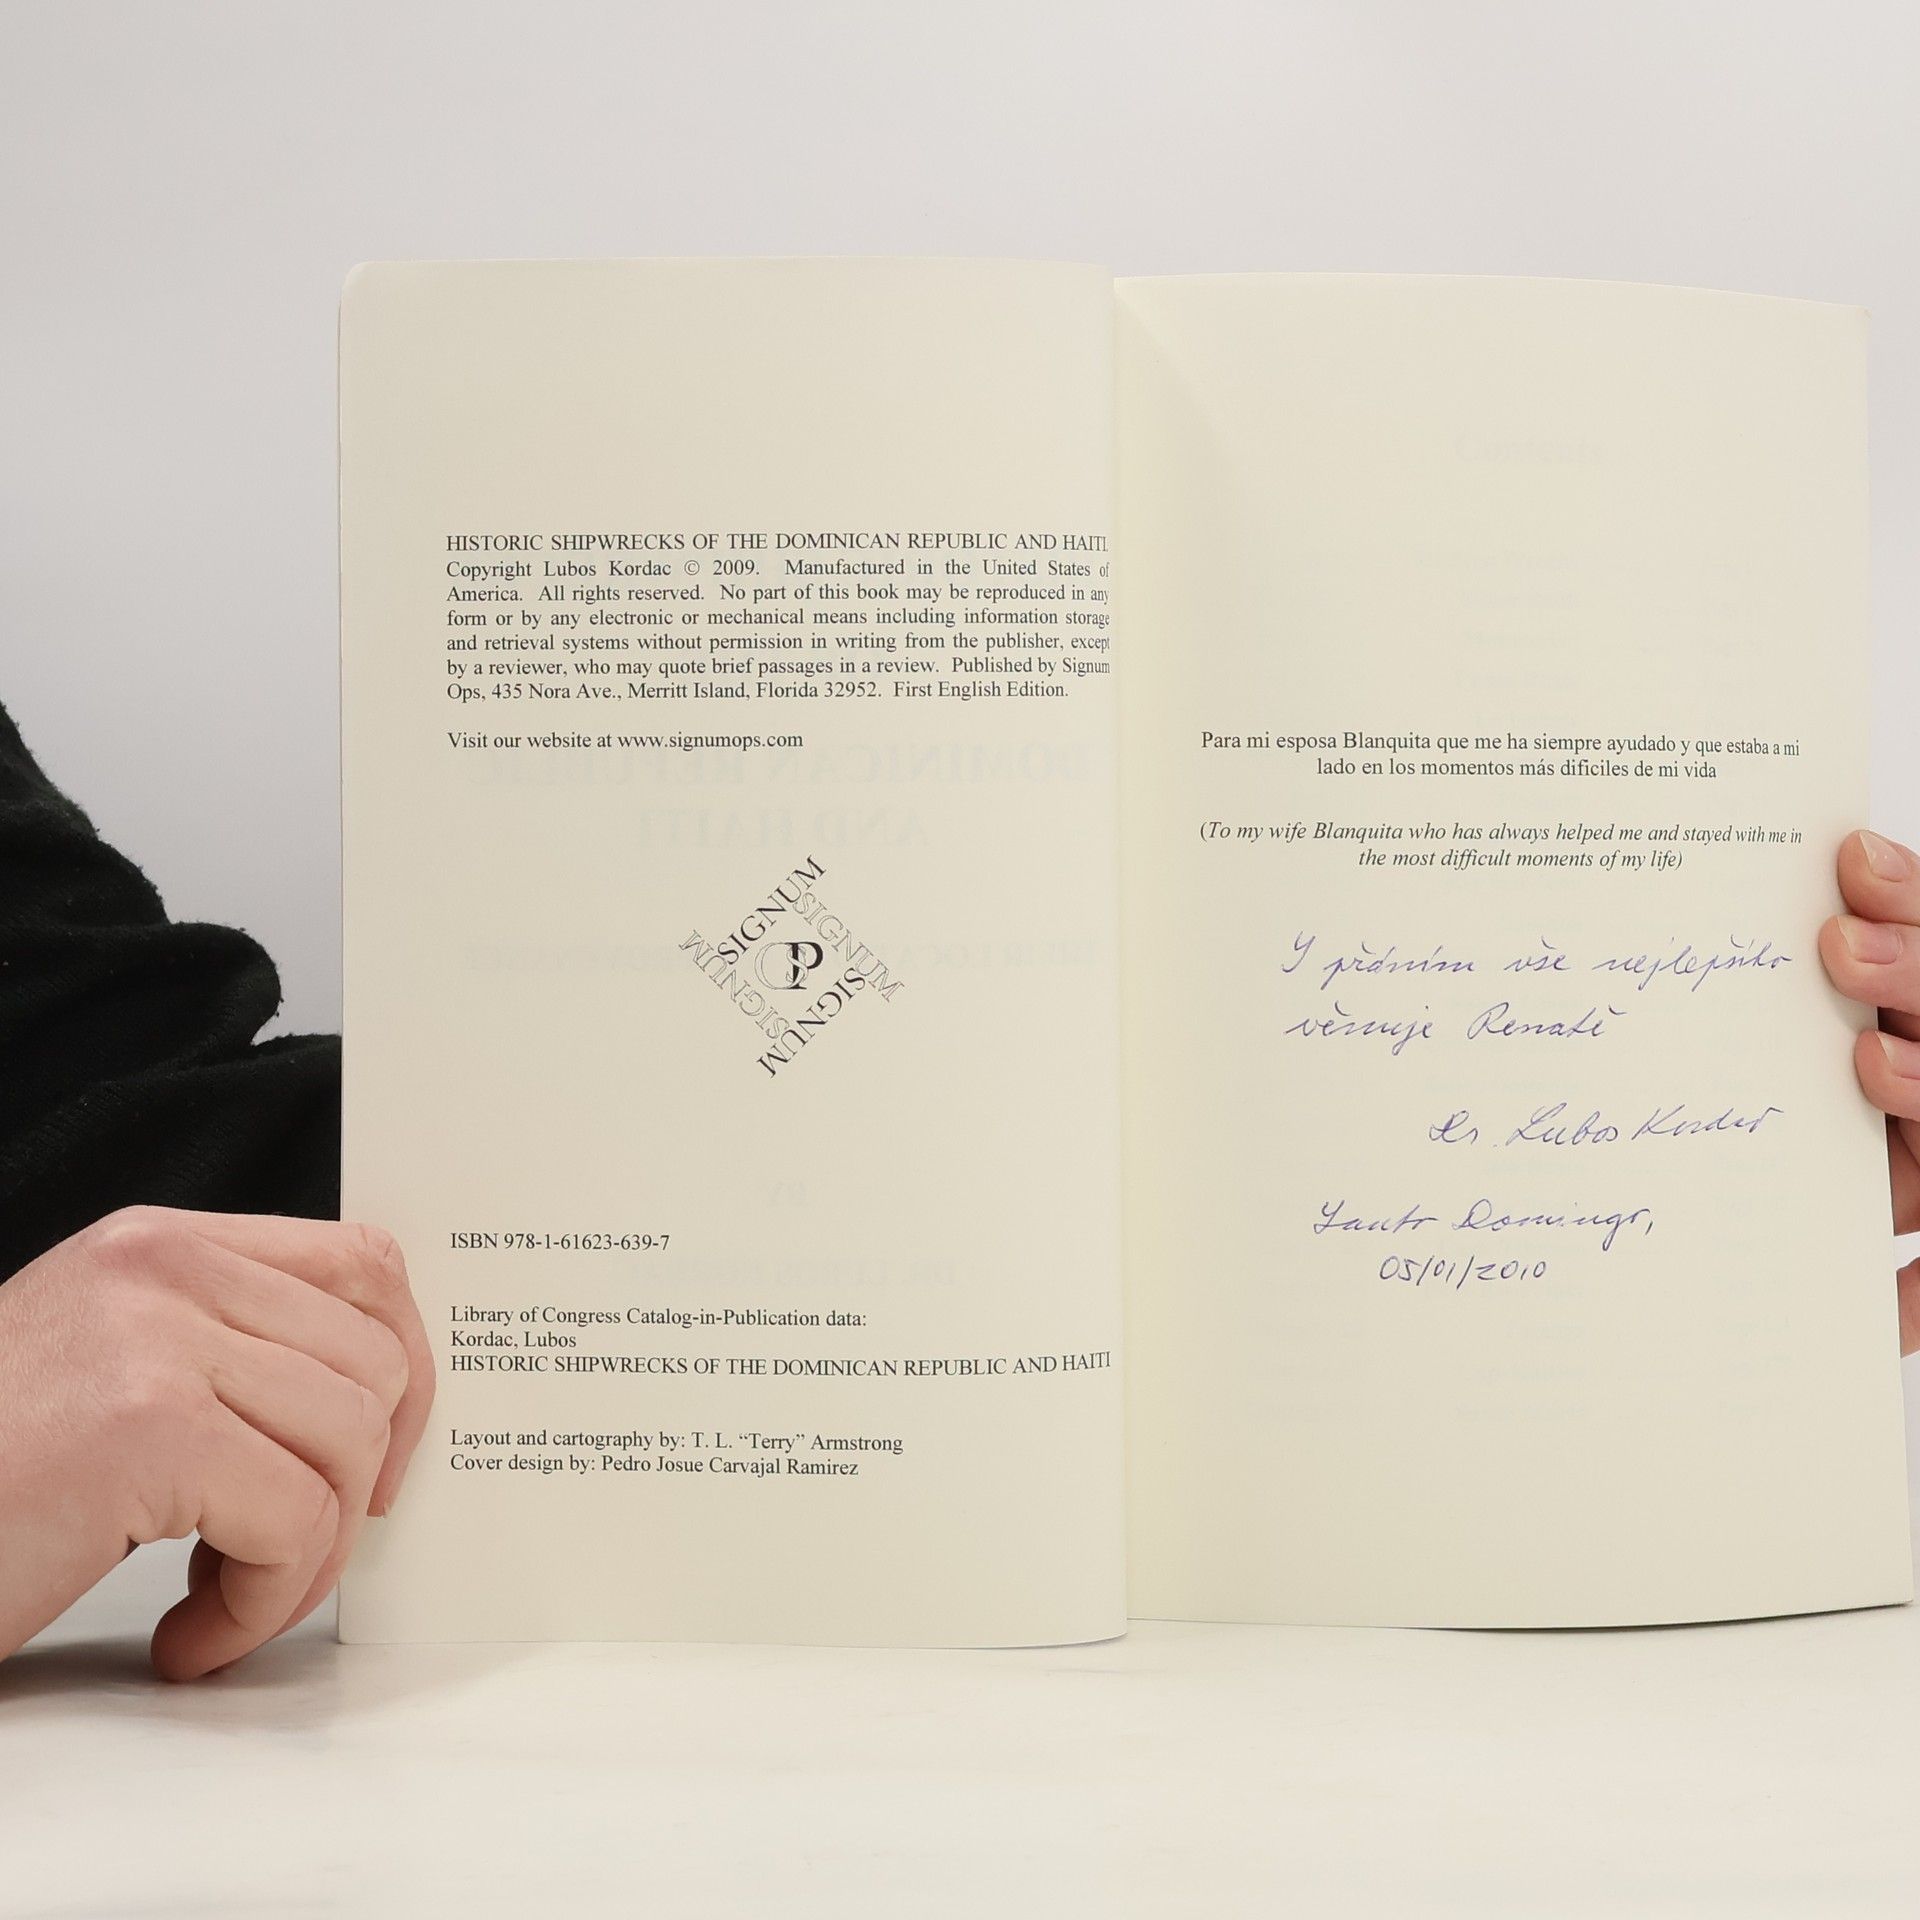 HISTORIC SHIPWRECKS OF THE DOMINICAN REPUBLIC AND HAITI.
Copyright Lubos Kordac © 2009. Manufactured in the United States of
America. All rights reserved. No part of this book may be reproduced in any
form or by any electronic or mechanical means including information storage
and retrieval systems without permission in writing from the publisher, except
by a reviewer, who may quote brief passages in a review. Published by Signum
Ops, 435 Nora Ave., Merritt Island, Florida 32952. First English Edition.
Visit our website at www.signumops.com
SIGNUM
SIGNUM
SIGNUM
SIGNUM
ISBN 978-1-61623-639-7
Library of Congress Catalog-in-Publication data:
Kordac, Lubos
HISTORIC SHIPWRECKS OF THE DOMINICAN REPUBLIC AND HAITI
Layout and cartography by: T. L. “Terry” Armstrong
Cover design by: Pedro Josue Carvajal Ramirez
Para mi esposa Blanquita que me ha siempre ayudado y que estaba a mi
lado en los momentos más dificiles de mi vida
(To my wife Blanquita who has always helped me and stayed with me in
the most difficult moments of my life)
S přáním vše nejlepšího
věnuje Renatě
Dr. Lubos Kordač
Santo Domingo,
05/01/2010